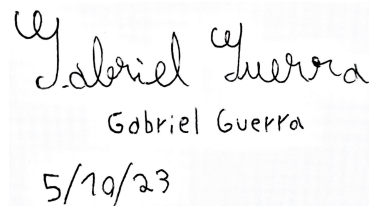 Gabriel Guerra
Gabriel Guerra
5/10/23